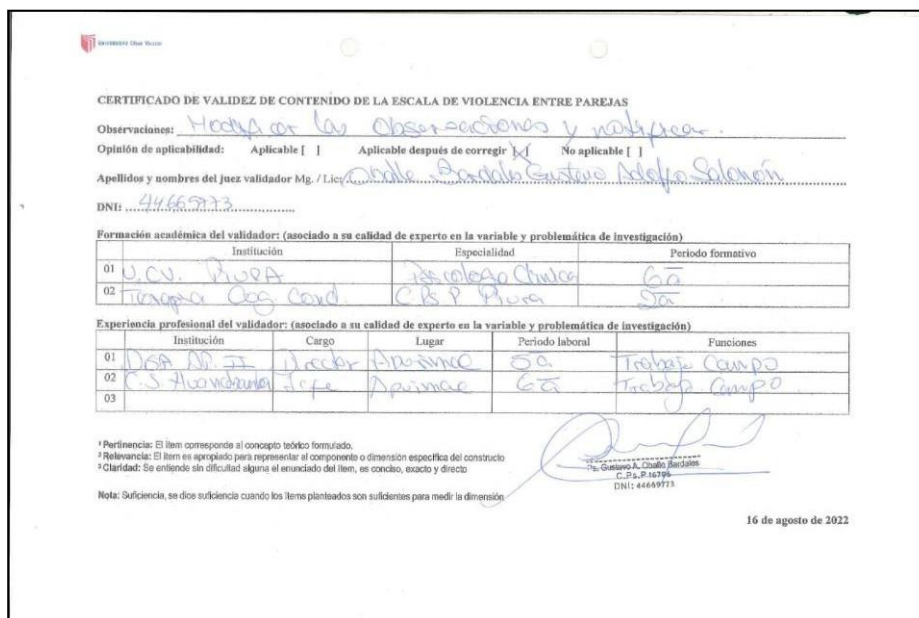 Universidad César Vallejo
CERTIFICADO DE VALIDEZ DE CONTENIDO DE LA ESCALA DE VIOLENCIA ENTRE PAREJAS
Observaciones: Modificar las observaciones y notificar.
Opinión de aplicabilidad: Aplicable [ ] Aplicable después de corregir [X] No aplicable [ ]
Apellidos y nombres del juez validador Mg. / Lic. Oballe Bardales Gustavo Adolfo Salomón
DNI: 44669773
Formación académica del validador: (asociado a su calidad de experto en la variable y problemática de investigación)
Institución Especialidad Periodo formativo
01 U.C.V. PIURA Psicólogo Clínica 6a
02 Terapia Cog Cond. C.Ps.P Piura 2a
Experiencia profesional del validador: (asociado a su calidad de experto en la variable y problemática de investigación)
Institución Cargo Lugar Periodo laboral Funciones
01 Apurimac 5a Trabajo Campo
02 C.S. Jefe Apurimac 6a Trabajo Campo
03
¹ Pertinencia: El ítem corresponde al concepto teórico formulado.
² Relevancia: El ítem es apropiado para representar al componente o dimensión específica del constructo
³ Claridad: Se entiende sin dificultad alguna el enunciado del ítem, es conciso, exacto y directo
Ps. Gustavo A. Oballe Bardales
C.Ps.P.16796
DNI: 44669773
Nota: Suficiencia, se dice suficiencia cuando los ítems planteados son suficientes para medir la dimensión
16 de agosto de 2022